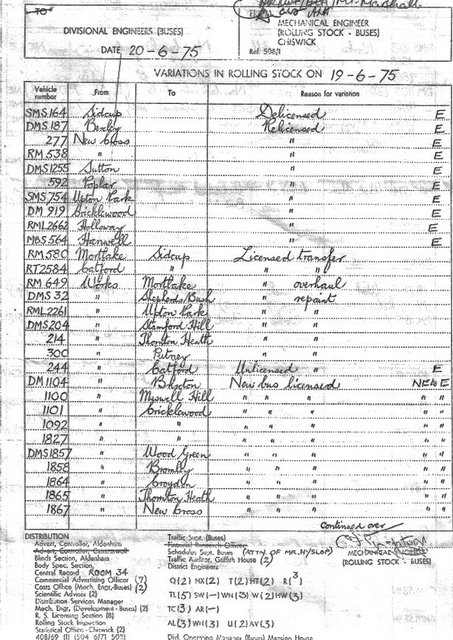 To:
DIVISIONAL ENGINEERS (BUSES)
MECHANICAL ENGINEER
(ROLLING STOCK - BUSES)
CHISWICK
DATE 20-6-75
Ref: 508/1
VARIATIONS IN ROLLING STOCK ON 19-6-75
Vehicle number From To Reason for variation
SMS 164 Sidcup Delicensed E
DMS 187 Bexley Relicensed E
277 New Cross " E
RM 538 " " E
DMS 1255 Sutton " E
592 Poplar " E
SMS 754 Upton Park " E
DM 919 Cricklewood " E
RML 2662 Holloway " E
MBS 564 Hanwell " E
RM 580 Mortlake Sidcup Licensed transfer
RT 2584 Catford " " "
RM 649 Works Mortlake " overhaul
DMS 32 " Shepherds Bush " repaint
RML 2261 " Upton Park " "
DMS 204 " Stamford Hill " "
214 " Thornton Heath " "
300 " Putney " "
244 " Catford Unlicensed " E
DM 1104 " Brixton New bus licensed NEW E
1100 " Muswell Hill " " " " "
1101 " Cricklewood " " " " "
1092 " " " " " " "
1827 " " " " " " "
DMS 1857 " Wood Green " " " " "
1858 " Bromley " " " " "
1864 " Croydon " " " " "
1865 " Thornton Heath " " " " "
1867 " New Cross " " " " "
Continued over
DISTRIBUTION
Advert. Controller, Aldenham
Blinds Section, Aldenham
Body Spec. Section,
Central Record ROOM 34
Commercial Advertising Officer (7)
Costs Office (Mech. Engr. Buses) (2)
Scientific Adviser (2)
Distribution Services Manager
Mech. Engr. (Development - Buses) (2)
R. S. Licensing Section (8)
Rolling Stock Inspector
Statistical Officer - Chiswick (2)
Traffic Supt. (Buses)
Schedules Supt. Buses (ATTN OF MR. HYSLOP)
Traffic Auditor, Griffith House (2)
District Engineers
Q(2) NX(2) T(2) HT(2) R(3
TL(5) SW(-) WN(3) W(2) HW(3)
TC(3) AR(-)
AL(3) WH(3) U(2) AV(3)
MECHANICAL ENGINEER
(ROLLING STOCK - BUSES)